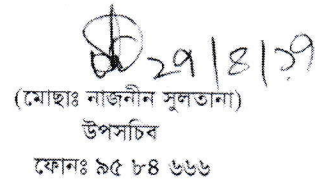 ২৭/৪/১৭
(মোছাঃ নাজনীন সুলতানা)
উপসচিব
ফোনঃ ৯৫ ৮৪ ৬৬৬